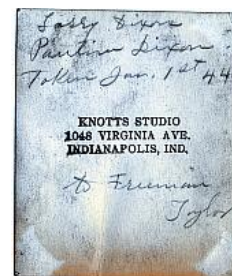 Dixon
Pauline Dixon
Taken Jan. 1st 44
KNOTTS STUDIO
1048 VIRGINIA AVE.
INDIANAPOLIS, IND.
to Freeman
Taylor